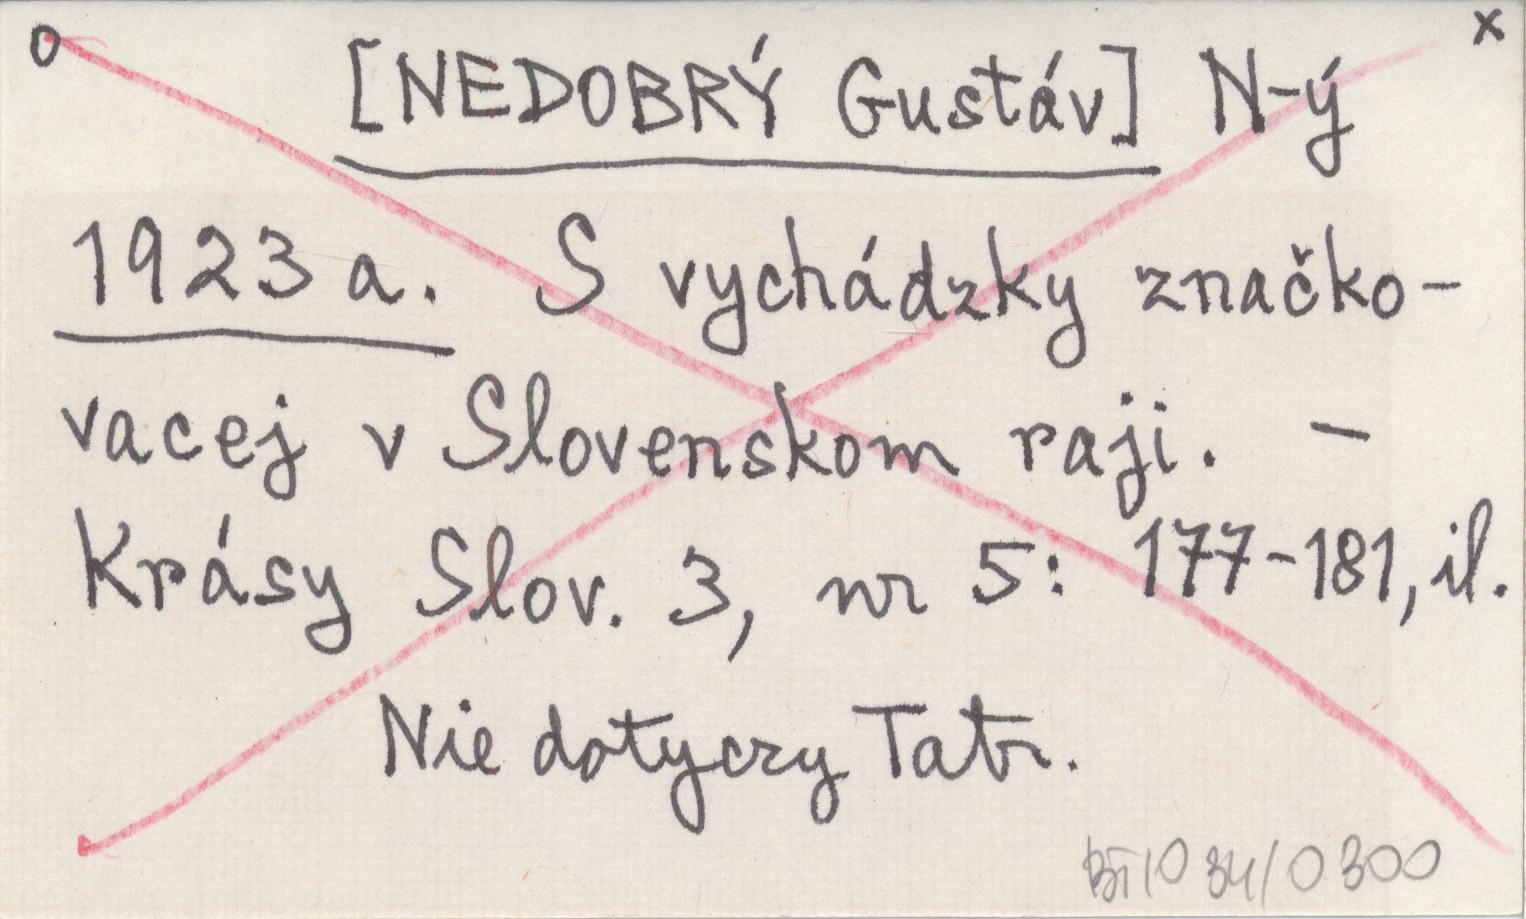 o [NEDOBRÝ Gustáv] N-ý x
1923 a. S vychádzky značko-
vacej v Slovenskom raji. –
Krásy Slov. 3, nr 5: 177-181, il.
Nie dotyczy Tatr.
034/0300